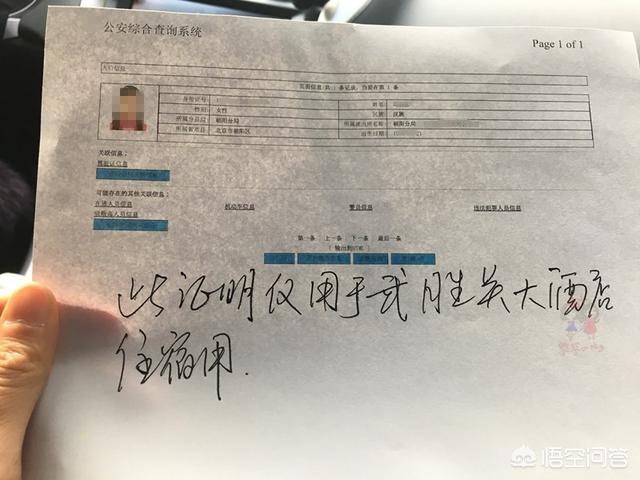 公安综合查询系统
Page 1 of 1
人口信息
页面信息 共 1 条记录，当前在第 1 条
身份证号： 1 姓名
性别： 女性 民族 汉族
所属分县局 朝阳分局 朝阳分局
北京市朝阳区 出生日期
关联信息：
可能存在的其他关联信息：
在逃人员信息 机动车信息 警员信息 违法犯罪人员信息
第一条 上一条 下一条 最后一条
此证明仅用于武胜关大酒店
住宿用.
悟空问答